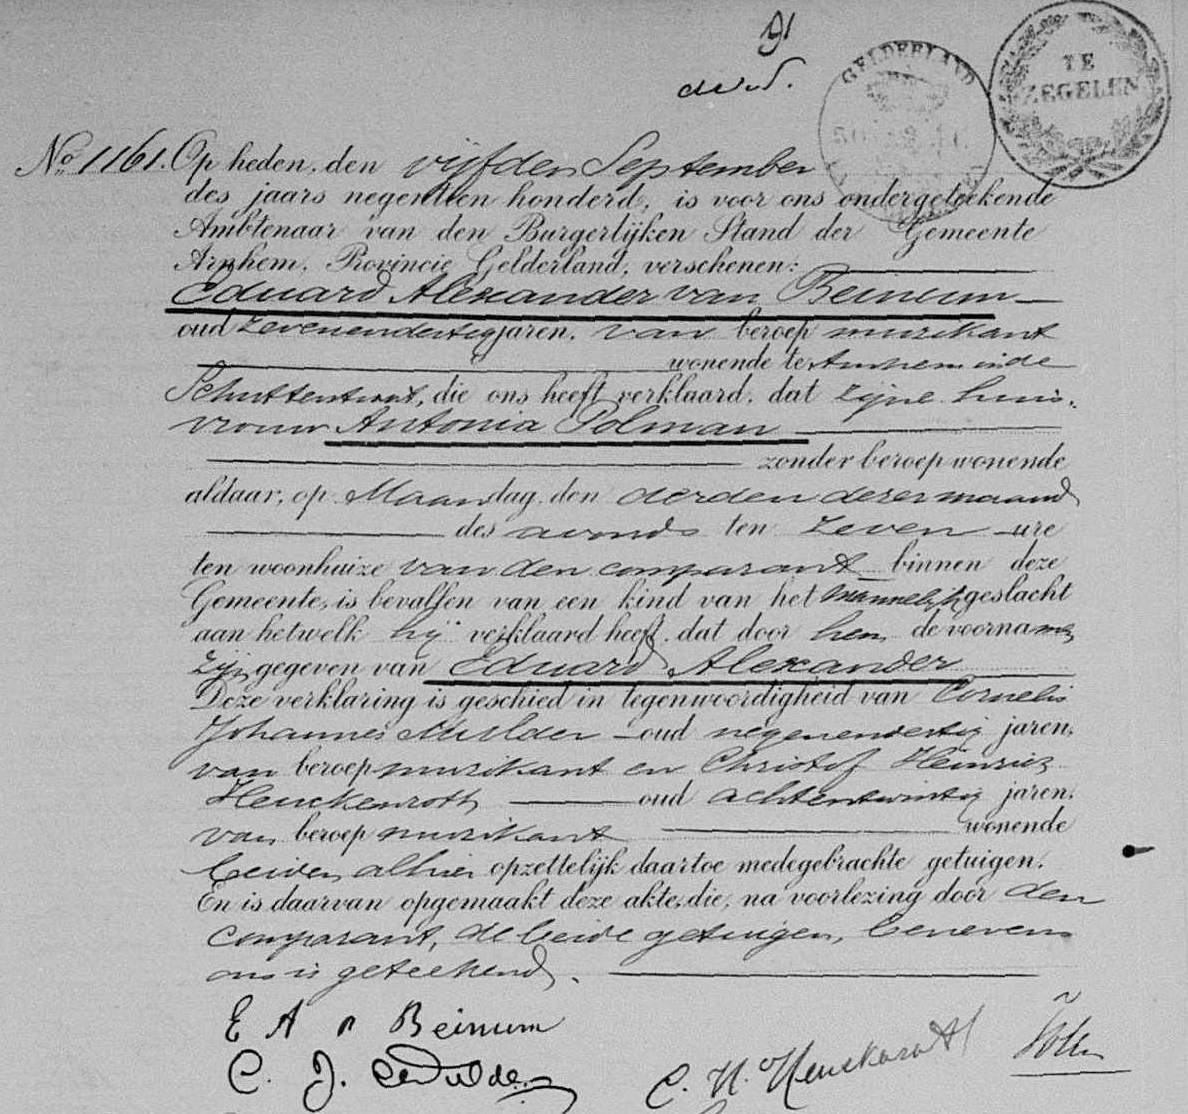 91
GELDERLAND
TE
ZEGELEN
No 1161. Op heden, den vijfden September
des jaars negentien honderd, is voor ons ondergeteekende
Ambtenaar van den Burgerlijken Stand der Gemeente
Arnhem, Provincie Gelderland, verschenen:
Eduard Alexander van Beinum
oud zevenendertig jaren, van beroep muzikant
wonende te Arnhem in de
Schuttestraat, die ons heeft verklaard, dat zijne huis-
vrouw Antonia Polman
zonder beroep wonende
aldaar, op Maandag den derden dezer maand
des avonds ten zeven ure
ten woonhuize van den comparant binnen deze
Gemeente, is bevallen van een kind van het mannelijk geslacht
aan hetwelk hij verklaard heeft, dat door hem de voornamen
zijn gegeven van Eduard Alexander
Deze verklaring is geschied in tegenwoordigheid van Cornelis
Johannes Mulder oud negenendertig jaren,
van beroep muzikant en Christof Heinrich
Henckenroth oud achtentwintig jaren,
van beroep muzikant wonende
beiden alhier opzettelijk daartoe medegebrachte getuigen.
En is daarvan opgemaakt deze akte, die, na voorlezing door den
comparant, de beide getuigen, benevens
ons is geteekend.
E A v Beinum
C. J. Mulder
C. H. Henckeroth